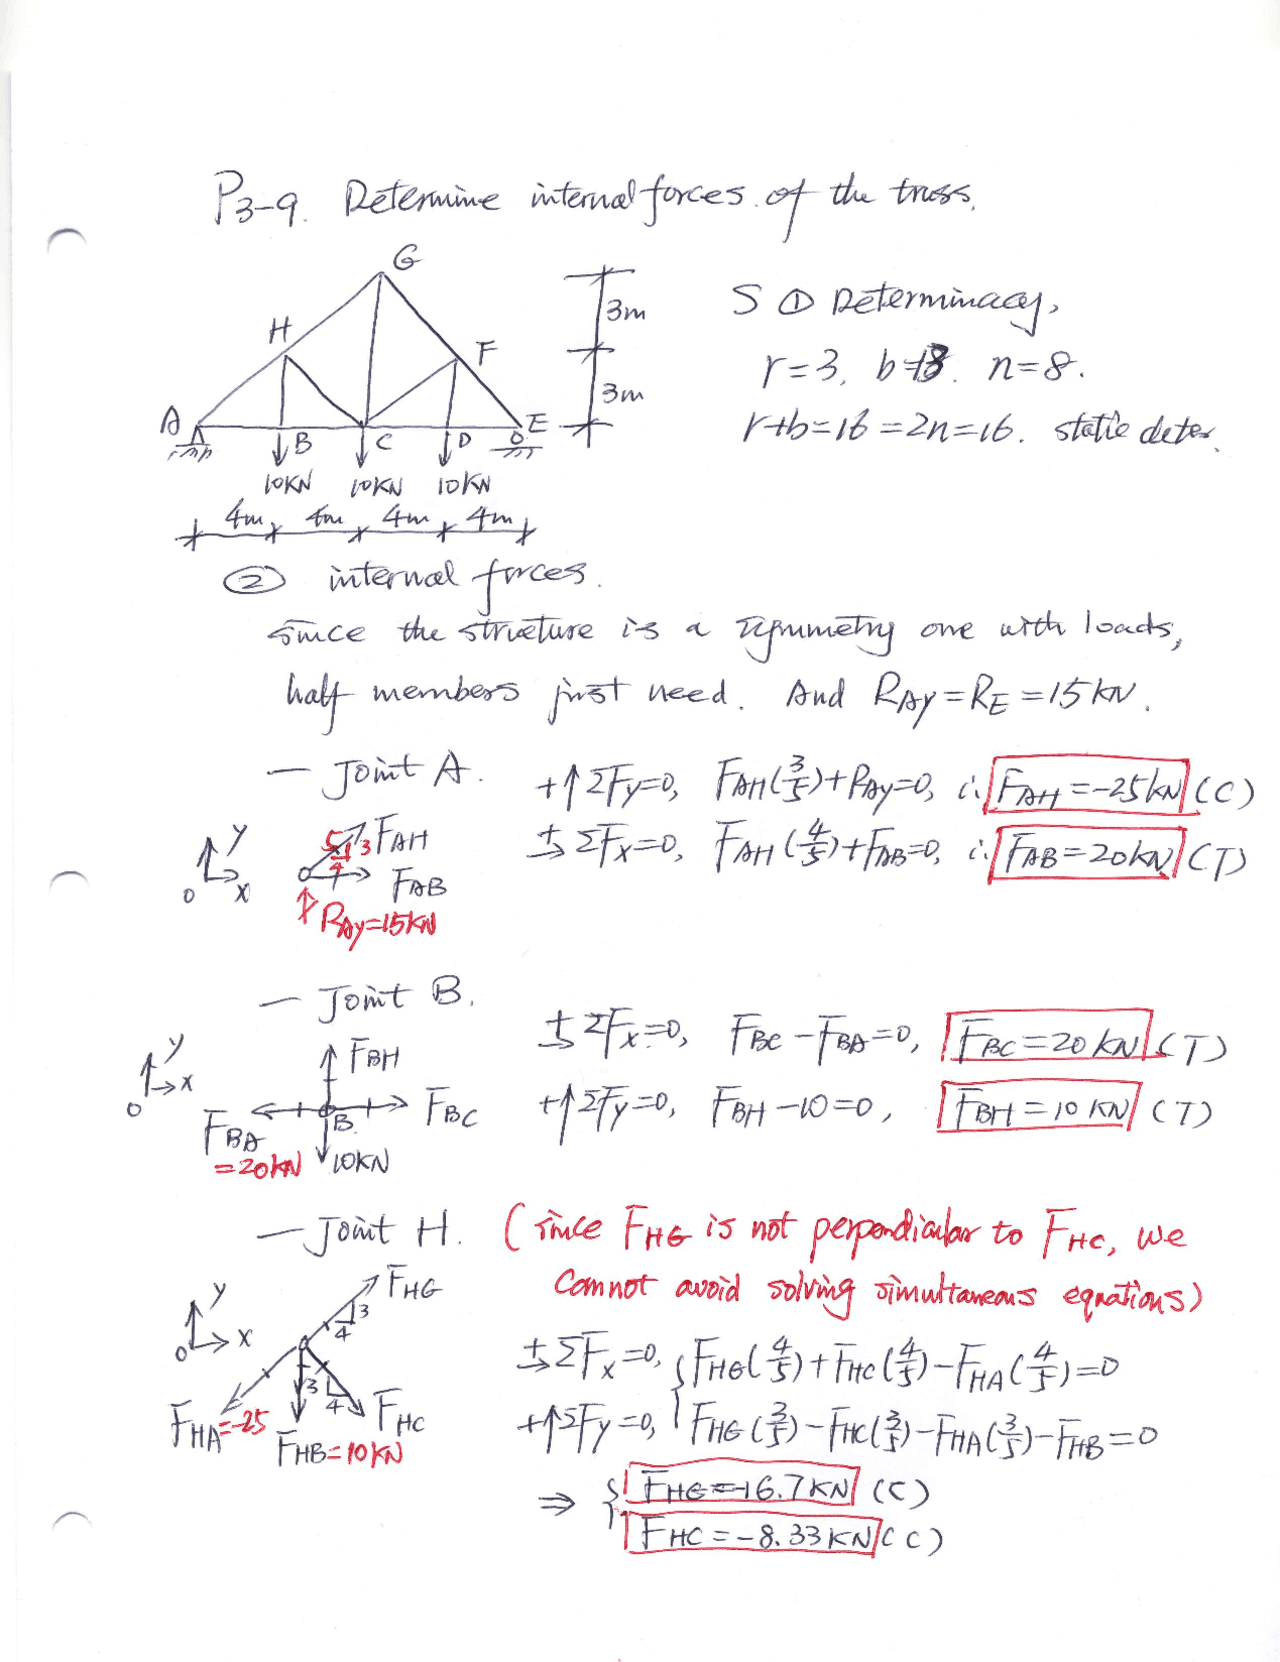 P3-9. Determine internal forces of the truss.
G
H
F
A
B
C
D
E
3m
3m
10KN 10KN 10KN
4m 4m 4m 4m
S ① Determinacy,
r=3, b=13. n=8.
r+b=16=2n=16. static deter.
② internal forces.
Since the structure is a symmetry one with loads,
half members just need. And RAy=RE=15KN.
— Joint A.
+↑ΣFy=0, FAH(3/5)+RAy=0, ∴ FAH=-25KN (C)
+→ΣFx=0, FAH(4/5)+FAB=0, ∴ FAB=20KN (T)
y
x
o
5
3
4
FAH
FAB
RAy=15KN
— Joint B.
+→ΣFx=0, FBC-FBA=0, FBC=20KN (T)
+↑ΣFy=0, FBH-10=0, FBH=10KN (T)
y
x
o
FBH
FBC
B
FBA
=20KN
10KN
— Joint H. (since FHG is not perpendicular to FHC, we
cannot avoid solving simultaneous equations)
y
x
o
FHG
3
4
3
4
FHC
FHA=-25
FHB=10KN
+→ΣFx=0, {FHG(4/5)+FHC(4/5)-FHA(4/5)=0
+↑ΣFy=0, FHG(3/5)-FHC(3/5)-FHA(3/5)-FHB=0
⇒ { FHG=-16.7KN (C)
FHC=-8.33KN (C)